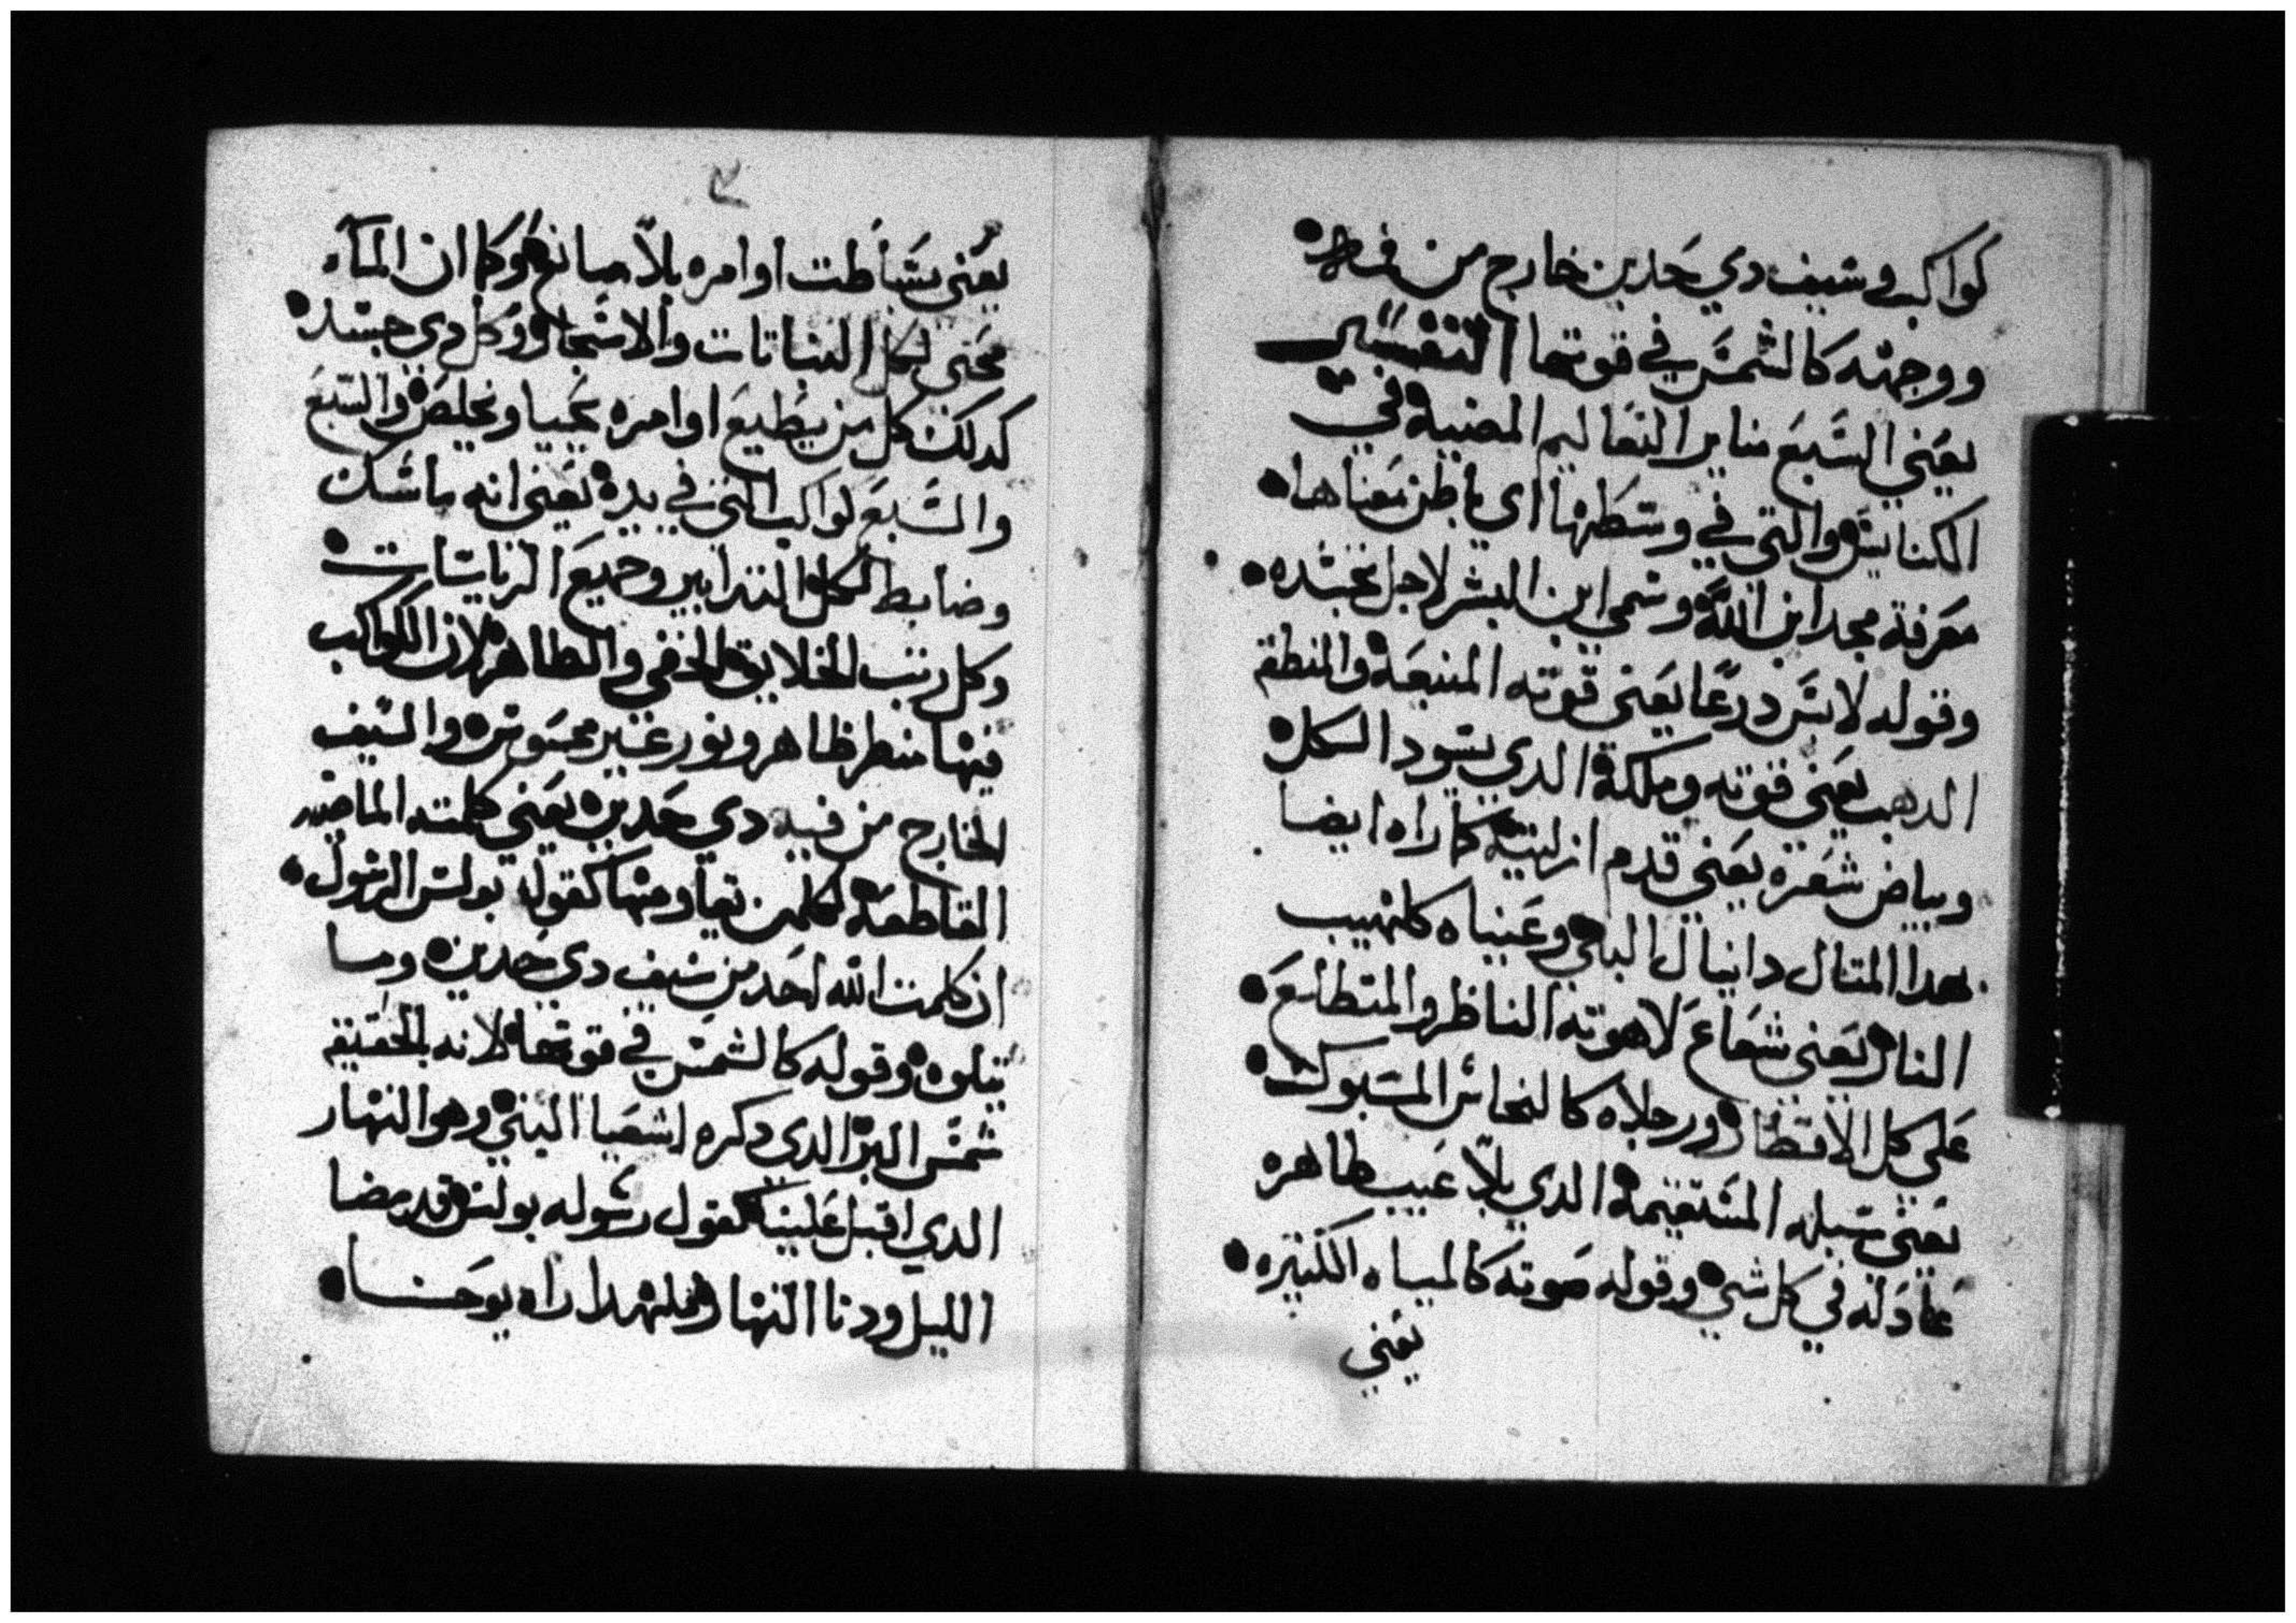 كواكب وسيف دي حدين خارج من فمه
ووجهه كالشمس في قوتها التفسير
يعني السبع مناير التعاليم المضيه في
الكنايس والتي في وسطها اي باطن معناها
معرفة مجد ابن الله وسمي ابن البشر لاجل تجسده
وقوله لابس درعا يعني قوته المنيعة والمنطقه
الدهب يعني قوته وملكة الدي يسود الكل
وبياض شعره يعني قدم ازليته كما راه ايضا
بهدا المتال دانيال النبي وعيناه كلهيب
النار يعني شعاع لاهوته الناظر والمتطلع
على كل الاقطار ورجلاه كالنحاس المسبوك
يعني سبله المستقيمة الدي بلا عيب طاهره
عادله في كل شي وقوله صوته كالمياه الكتيره
يعني
يعني بشاطت اوامره بلا مانع وكما ان الماء
محيي لكل النباتات والاشجار وكل دي جسد
كدلك كل من يطيع اوامره يحيا ويخلص والسبع
والسبع كواكب التي في يده يعني انه ماسك
وضابط لكل التدابير وجميع الرياسات
وكل رتب الخلايق الخفي والظاهر لان الكواكب
فيها منظر ظاهر ونور غير محسوس والسيف
الخارج من فيه دي حدين يعني كلمته الماضيه
القاطعة لكلمن يعاومها كقوله بولس الرسول
ان كلمت الله احد من سيف دي حدين وما
يتلوه وقوله كالشمس في قوتها لانه بالحقيقه
شمس البر الدي دكره اشعيا النبي وهو النهار
الدي اقبل علينا كقول رسوله بولس قد مضا
الليل ودنا النهار فلهدا راه يوحنا